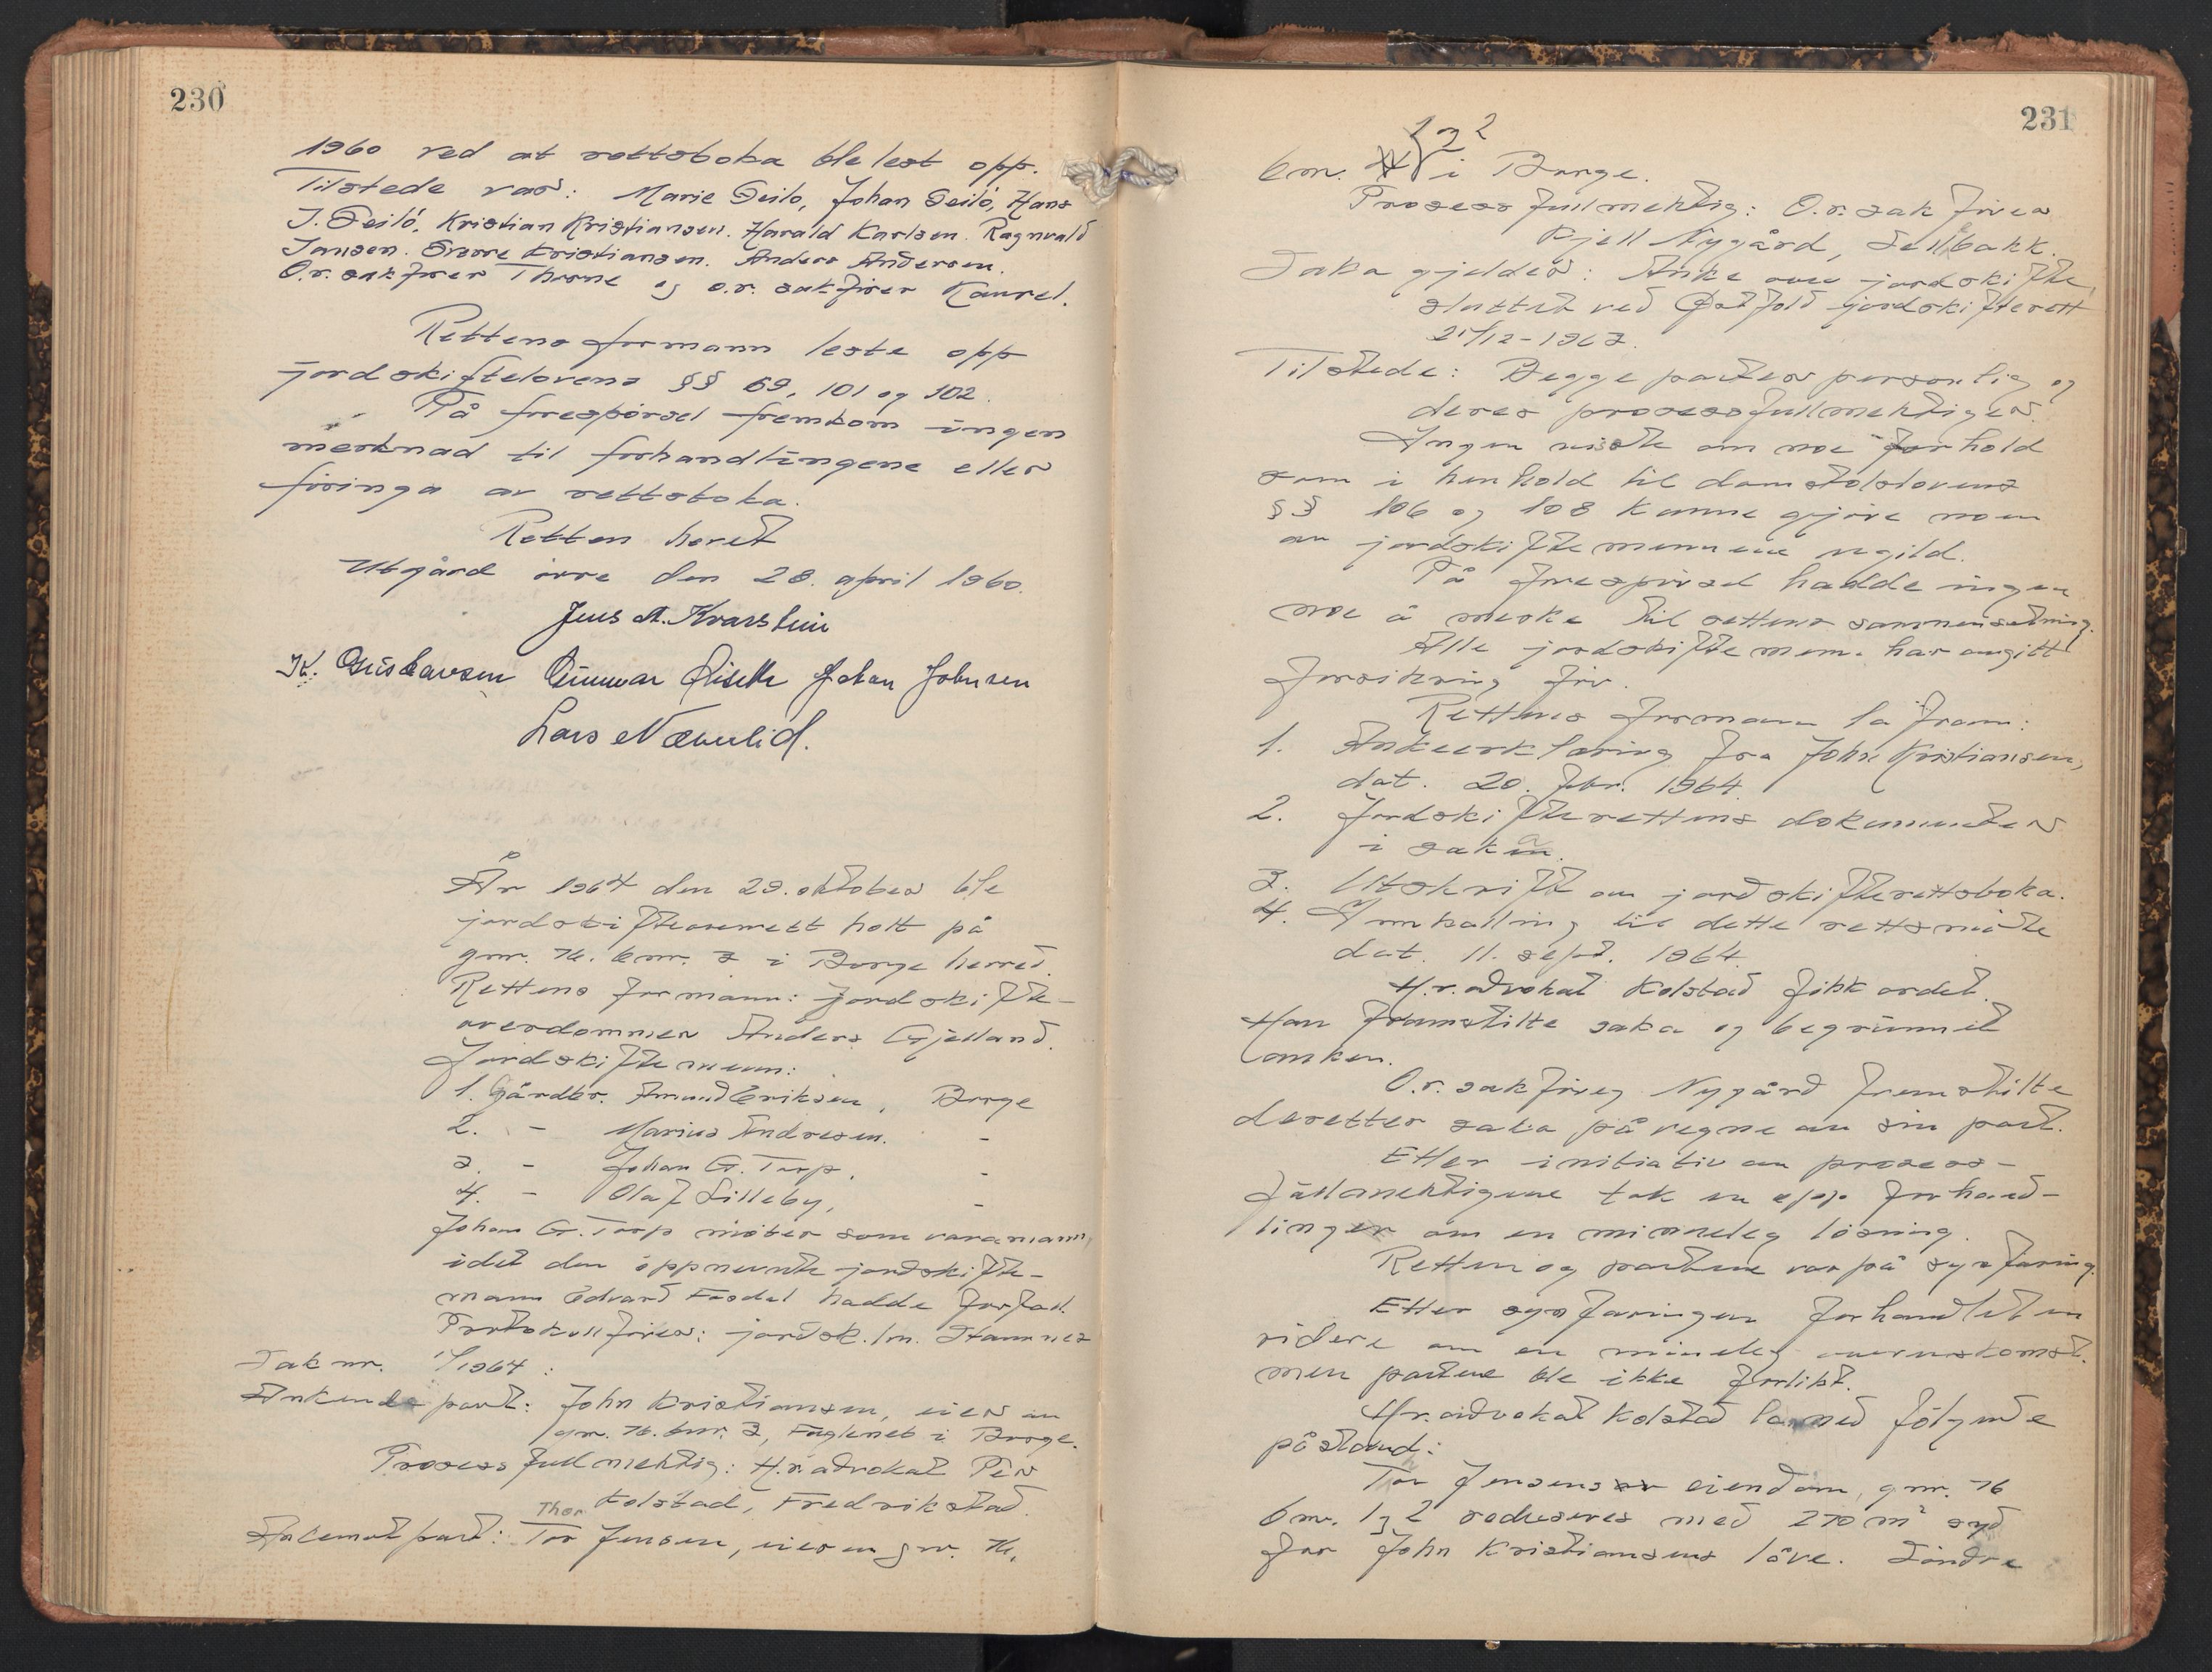 230
1960 ved at rettsboka ble lest opp.
Tilstede var: Marie Seilö, Johan Seilö, Hans
J. Seilö, Kristian Kristiansen. Harald Karlsen. Ragnvald
Jansen. Sverre Kristiansen. Anders Andersen.
O.r. sakfører Thorne og o.r. sakfører Kaurel.
Rettens formann leste opp
jordskiftelovens §§ 69, 101 og 102.
På forespørsel fremkom ingen
merknad til forhandlingene eller
føringa av rettsboka.
Retten hevet
Utgård øvre den 28. april 1960.
Jens A. Kvarstein
K. Gustavsen Gunnar Johan Johnsen
Lars Nævulid.
År 1964 den 29. oktober ble
jordskifteoverrett holt på
gnr. 76. bnr. 3 i Borge herred.
Rettens formann: jordskifte-
overdommer Anders Gjelland.
Jordskiftemenn:
1. Gårdbr. Amund Eriksen, Borge
2. - Marius Andresen. -
3. - Johan G. Torp. -
4. - Olaf Lilleby, -
Johan G. Torp møter som varamann,
idet den oppnevnte jordskifte-
mann Edvard hadde forfall.
Protokollfører: jordsk.lm. Stamnes
Sak nr. 1/1964:
Ankende part: John Kristiansen, eier av
gnr. 76. bnr. 3, Fugleneb i Borge.
Prosessfullmektig: H.r. advokat Per
Kolstad, Fredrikstad.
Thor
Ankemotpart: Tor Jensen, eier av gnr. 76,
231
1 og 2
bnr. i Borge.
Prosessfullmektig: O.r. sakfører
Kjell Nygård, Sellbakk.
Saka gjelder: Anke over jordskifte,
sluttet ved Østfold jordskifterett
21/12-1963.
Tilstede: Begge parter personlig og
deres prosessfullmektiger.
Ingen visste om noe forhold
som i henhold til domstolslovens
§§ 106 og 108 kunne gjøre noen
av jordskiftemennene ugild.
På forespørsel hadde ingen
noe å merke til rettens sammensetning.
Alle jordskiftemenn har avgitt
forsikring før.
Rettens formann la fram:
1. Ankeerklæring fra John Kristiansen,
dat. 20. febr. 1964.
2. Jordskifterettens dokumenter
i saka.
3. Utskrift av jordskifterettsboka.
4. Innkalling til dette rettsmøte
dat. 11. sept. 1964.
H.r. advokat Kolstad fikk ordet.
Han framstilte saka og begrunnet
anken.
O.r. sakfører Nygård fremstilte
deretter saka på vegne av sin part.
Etter initiativ av prosess-
fullmektigene tok en opp forhand-
linger om en minnelig løsning.
Retten og partene var på synfaring.
Etter synfaringen forhandlet en
videre om en minnelig overenskomst.
men partene ble ikke forlikt.
H.r. advokat Kolstad la ned følgende
påstand:
Tor Jensens eiendom, gnr. 76
bnr. 1 og 2 reduseres med 270 m² syd
for John Kristiansens låve. Søndre